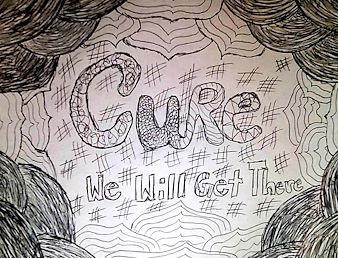 CURe
We Will Get There